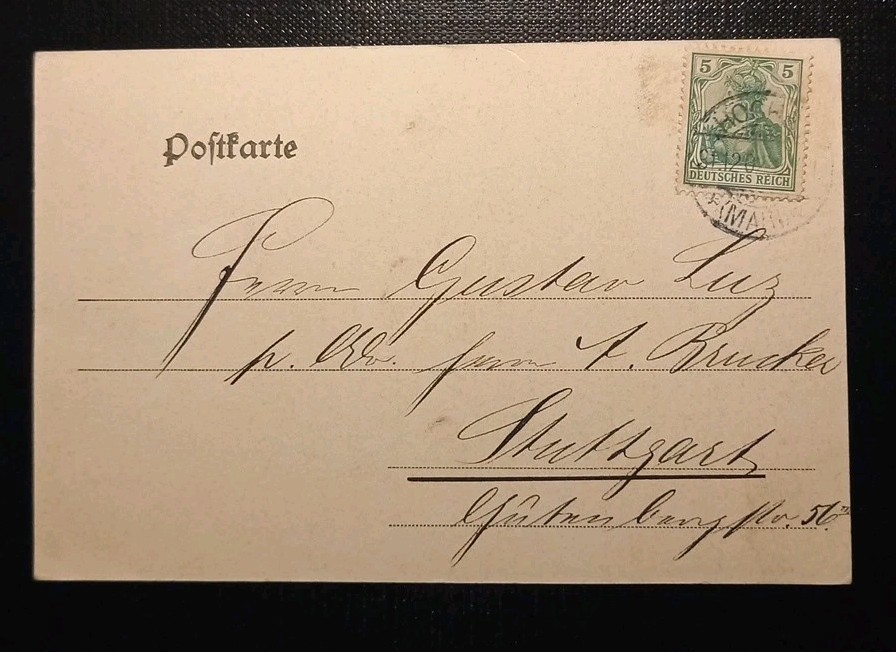 Postkarte
5 5
DEUTSCHES REICH
(MAIN)
Herrn Gustav Luz
p. Adr. Herrn A. Brucker
Stuttgart
Gutenbergstr. 56